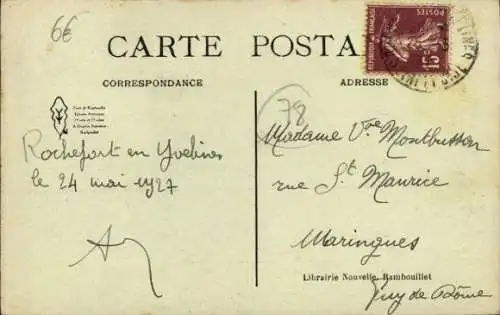 6€
CARTE POSTA
POSTES
REPUBLIQUE FRANCAISE
15
CORRESPONDANCE
ADRESSE
78
Rochefort en Yvelines
le 24 mai 1927
Madame Vve Montbusson
rue St Maurice
Maringues
Librairie Nouvelle, Rambouillet
Puy de Dôme